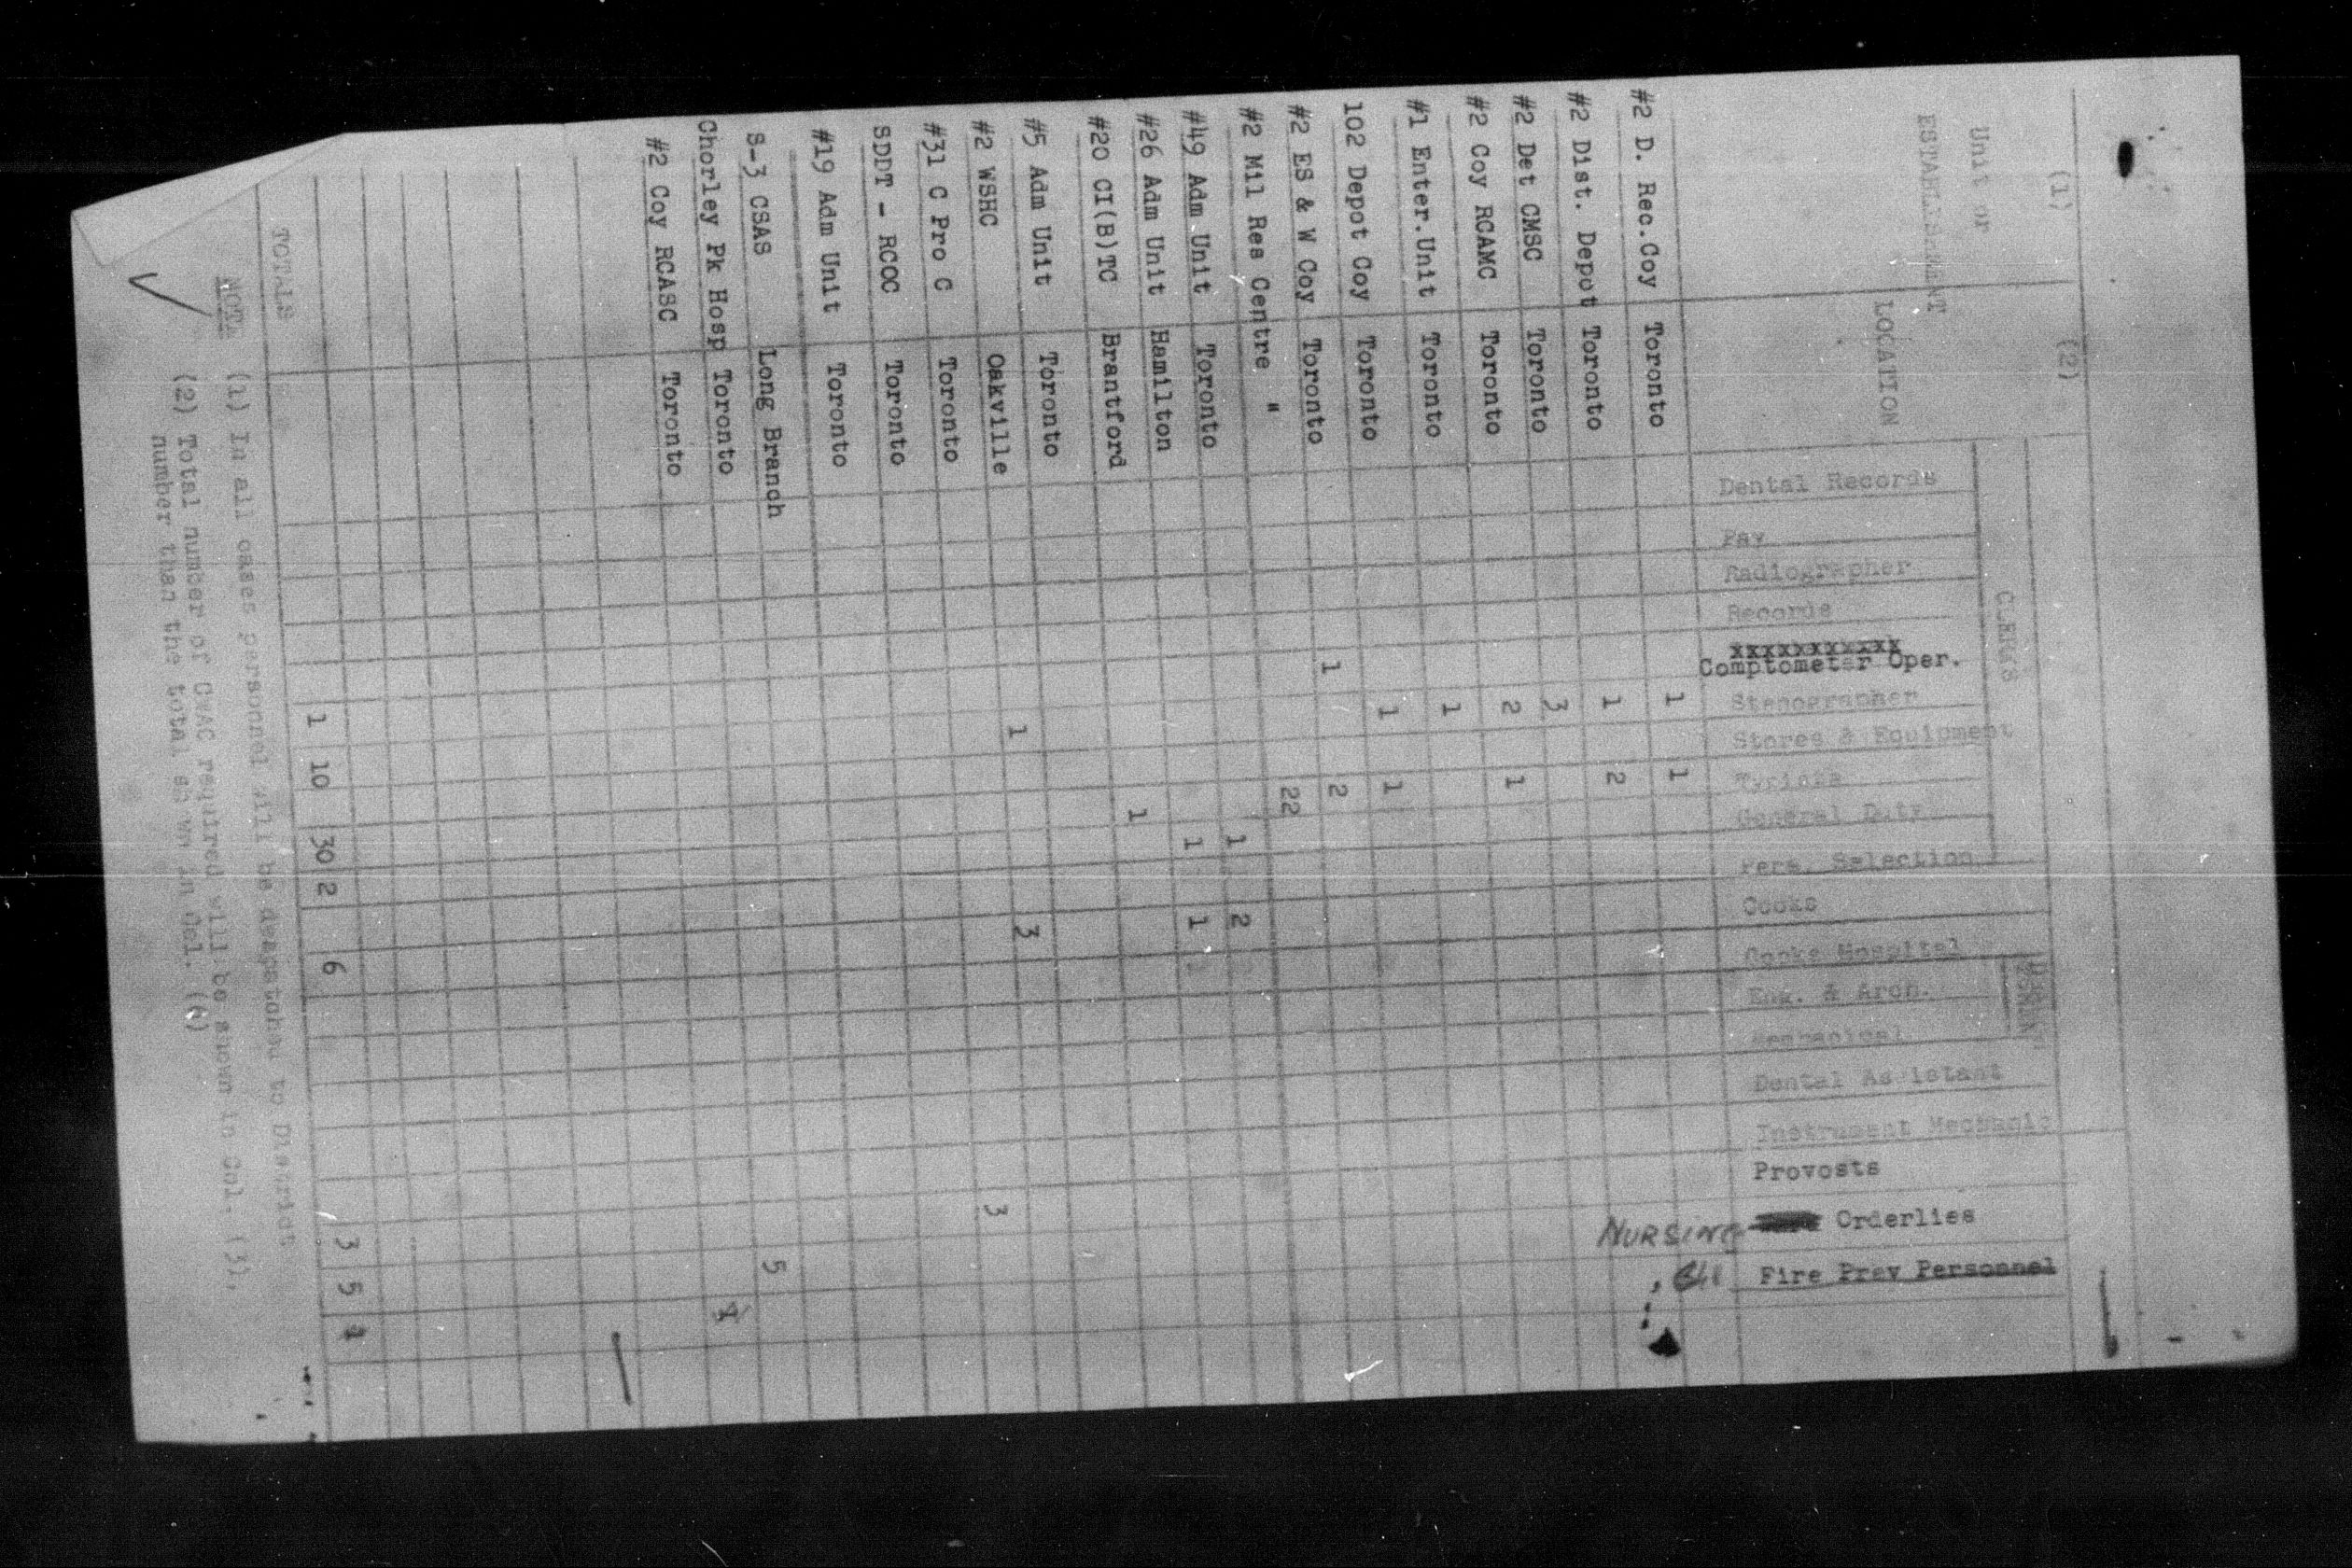 (1) (2)
Unit or
ESTABLISHMENT LOCATION
CLERKS
Dental Records
Pay
Radiographer
Records
xxxxxxxxxxx
Comptometer Oper.
Stenographer
Stores & Equipment
Typists
General Duty
Pers. Selection
Cooks
Cooks Hospital
Eng. & Arch.
Mechanical
Dental Assistant
Instrument Mechanic
Provosts
NURSING Orderlies
Fire Prev Personnel
#2 D. Rec.Coy Toronto 1 1
#2 Dist. Depot Toronto 1 2
#2 Det CMSC Toronto 3
#2 Coy RCAMC Toronto 2 1
#1 Enter.Unit Toronto 1
102 Depot Coy Toronto 1 1
#2 ES & W Coy Toronto 1 2
#2 Mil Res Centre " 22
#49 Adm Unit Toronto 1 2
#26 Adm Unit Hamilton 1 1
#20 CI(B)TC Brantford 1
#5 Adm Unit Toronto 1 3
#2 WSHC Oakville 3
#31 C Pro C Toronto
SDDT - RCOC Toronto
#19 Adm Unit Toronto
S-3 CSAS Long Branch 5
Chorley Pk Hosp Toronto
#2 Coy RCASC Toronto
TOTALS 1 10 30 2 6 3 5
NOTE (1) In all cases personnel will be despatched to District
(2) Total number of CWAC required will be shown in Col. (3),
number than the total shown in Col. (4)